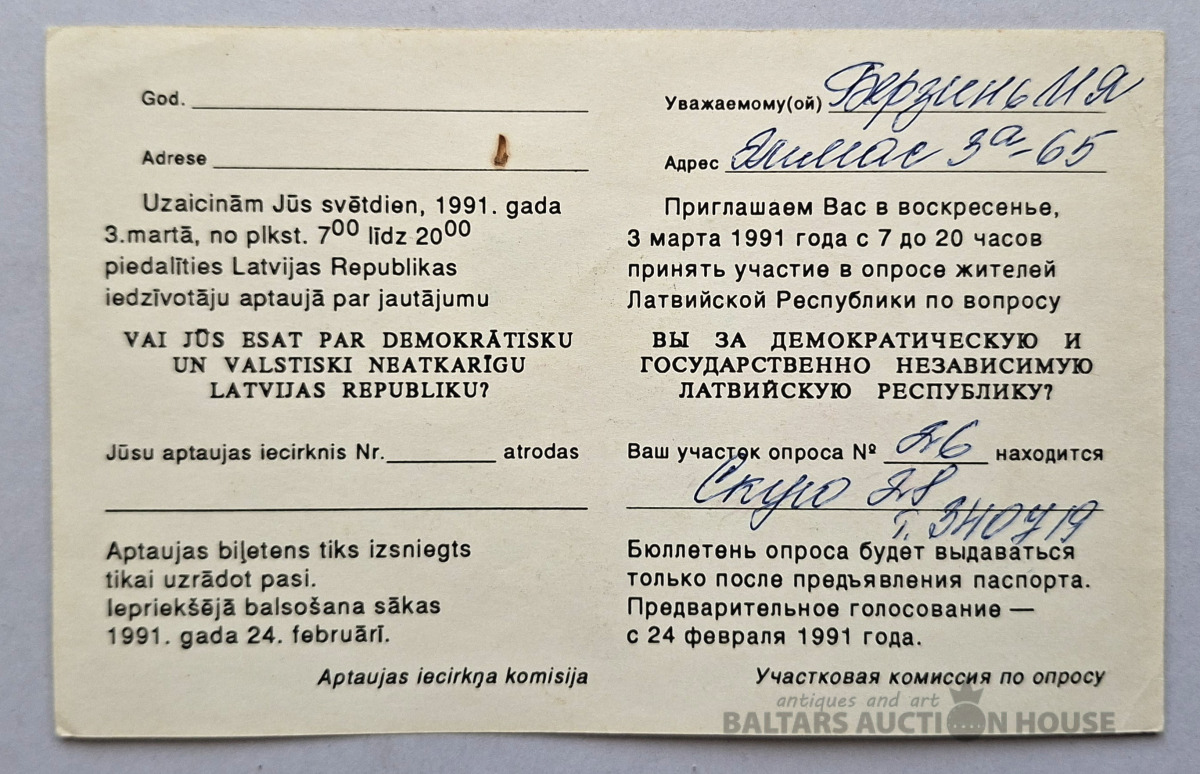 God.
Adrese
Uzaicinām Jūs svētdien, 1991. gada
3.martā, no plkst. 7⁰⁰ līdz 20⁰⁰
piedalīties Latvijas Republikas
iedzīvotāju aptaujā par jautājumu
VAI JŪS ESAT PAR DEMOKRĀTISKU
UN VALSTISKI NEATKARĪGU
LATVIJAS REPUBLIKU?
Jūsu aptaujas iecirknis Nr. atrodas
Aptaujas biļetens tiks izsniegts
tikai uzrādot pasi.
Iepriekšējā balsošana sākas
1991. gada 24. februārī.
Aptaujas iecirkņa komisija
Уважаемому(ой) Берзинь И Я
Адрес 3а-65
Приглашаем Вас в воскресенье,
3 марта 1991 года с 7 до 20 часов
принять участие в опросе жителей
Латвийской Республики по вопросу
ВЫ ЗА ДЕМОКРАТИЧЕСКУЮ И
ГОСУДАРСТВЕННО НЕЗАВИСИМУЮ
ЛАТВИЙСКУЮ РЕСПУБЛИКУ?
Ваш участок опроса № 26 находится
28
т.
Бюллетень опроса будет выдаваться
только после предъявления паспорта.
Предварительное голосование —
с 24 февраля 1991 года.
Участковая комиссия по опросу
antiques and art
BALTARS AUCTION HOUSE